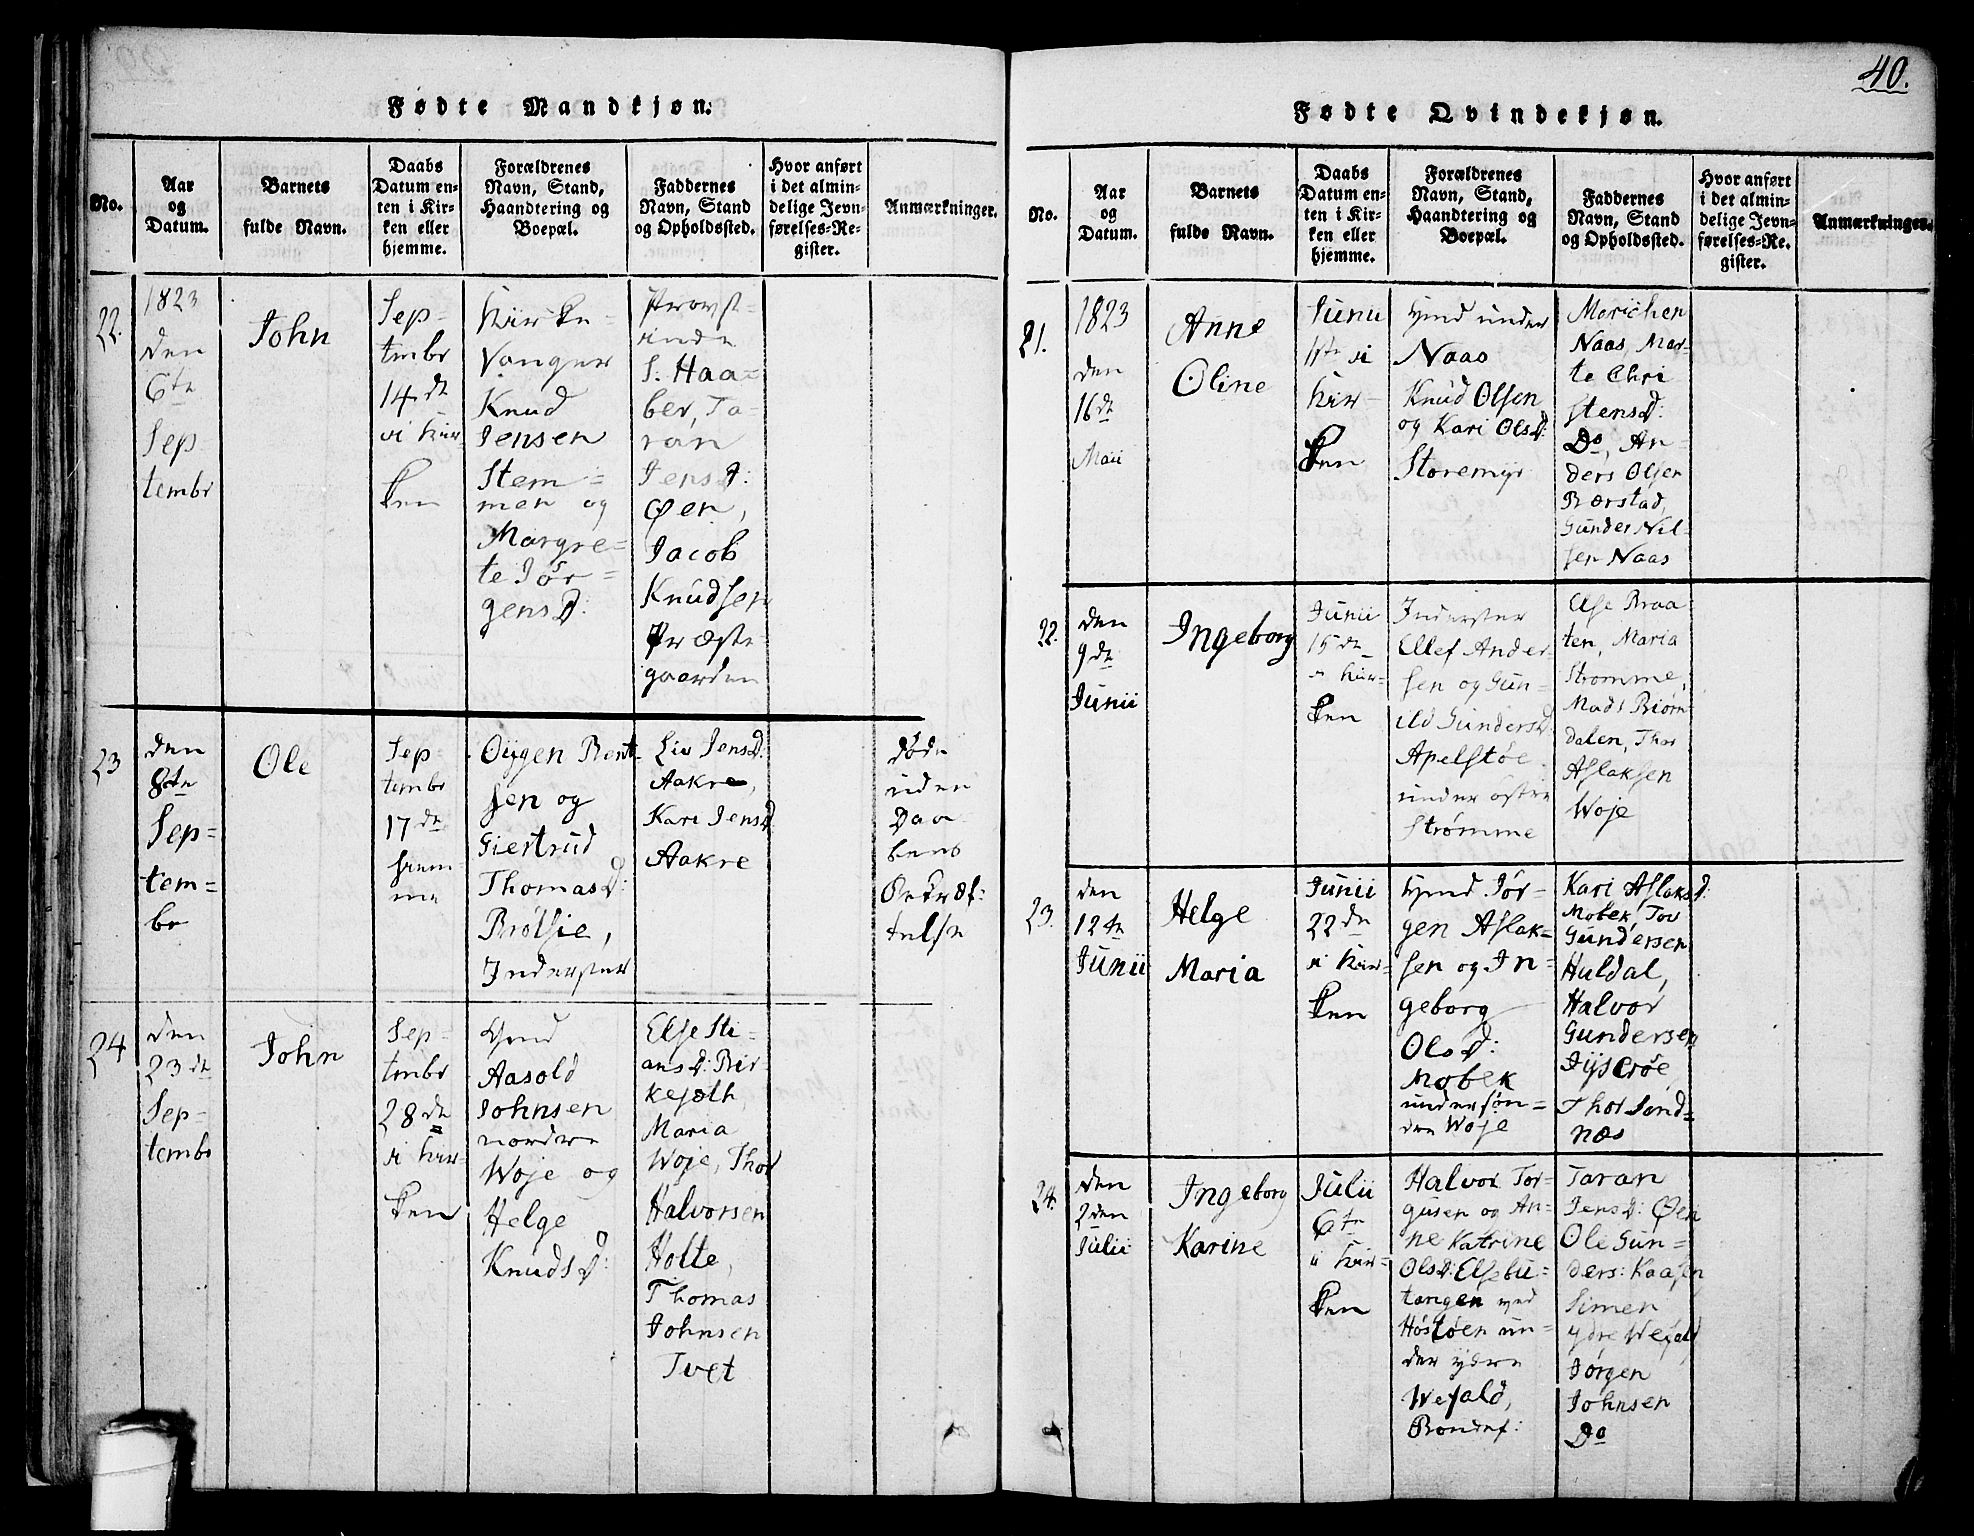 40.
Fødte Mandkjøn.
No.
Aar
og
Datum.
Barnets
fulde Navn.
Daabs
Datum en-
ten i Kir-
ken eller
hjemme.
Forældrenes
Navn, Stand,
Haandtering og
Boepæl.
Faddernes
Navn, Stand
og Opholdssted.
Hvor anført
i det almin-
delige Jevn-
førelses-Re-
gister.
Anmærkninger.
22.
1823
den
6te
Sep
tembr
John
Sep-
tembr
14de
i Kir-
ken
Kirke-
Sanger
Knud
Jensen
Stem-
men og
Margre-
te Jör-
gensD:
Provst-
inde
S. Haa-
ber, Ta-
ran
JensD:
Øen,
Jacob
Knudsen
Præste-
gaarden
23
den
8de
Sep-
tem-
br
Ole
Sep-
tembr
17de
hjem-
me
Oÿgen Bent-
sen og
Giertrud
ThomasD:
Brötsie,
Inderster
Liv JensD:
Aakre,
Kari JensD:
Aakre
døde
uden
Daa-
bens
Bekræf-
telse
24
den
23de
Sep-
tembr
John
Sep-
tembr
28de
i Kir-
ken
Gmd
Aasold
Johnsen
nordre
Woje og
Helge
KnudsD:
Else Sti-
ansD: Bir
kesøth
Maria
Woje, Thor
Halvorsen
Holte,
Thomas
Johnsen
Tvet
Fødte Qvindekjøn.
No.
Aar
og
Datum.
Barnets
fulde Navn.
Daabs
Datum en-
ten i Kir-
ken eller
hjemme.
Forældrenes
Navn, Stand,
Haandtering og
Boepæl.
Faddernes
Navn, Stand
og Opholdssted.
Hvor anført
i det almin-
delige Jevn-
førelses-Re-
gister.
Anmærkninger.
21.
1823
den
16de
Maii
Anne
Oline
Junii
1ste i
Kir-
ken
Hmd under
Naas
Knud Olsen
og Kari OlsD:
Storemyr
Marichen
Naas, Mar-
te Chri
stensD:
Do, An-
ders Olsen
Bærstad,
Gunder Nil-
sen Naas
22.
den
9de
Junii
Ingeborg
Junii
15de
i Kir-
ken
Inderster
Ellef Ander-
sen og Gun-
ild GundersD:
Apelstøe
under østre
Strømme
Else Braa-
ten, Maria
Strømme,
Mads Biørn
dalen, Thor
Aslaksen
Woje
23.
den
12te
Junii
Helge
Maria
Junii
22de
i Kir-
ken
Hmd Jör-
gen Aslak-
sen og In-
geborg
OlsD:
Mobek
under søn-
dre Woje
Kari AslaksD:
Mobek, Tov
Gundersen
Huldal,
Halvor
Gundersen
Thor Sand-
næs
24.
den
2den
Julii
Ingeborg
Karine
Julii
6te
i Kir-
ken
Halvor Tor-
gusen og An-
ne Katrine
OlsD: Elsebu-
tangen ved
Høstøen un-
der ydre
Wefald,
Bondef:
Taran
JensD: Øen
Ole Gun-
ders: Kaasen
Simen
ydre Wefald
Jørgen
Johnsen
Do